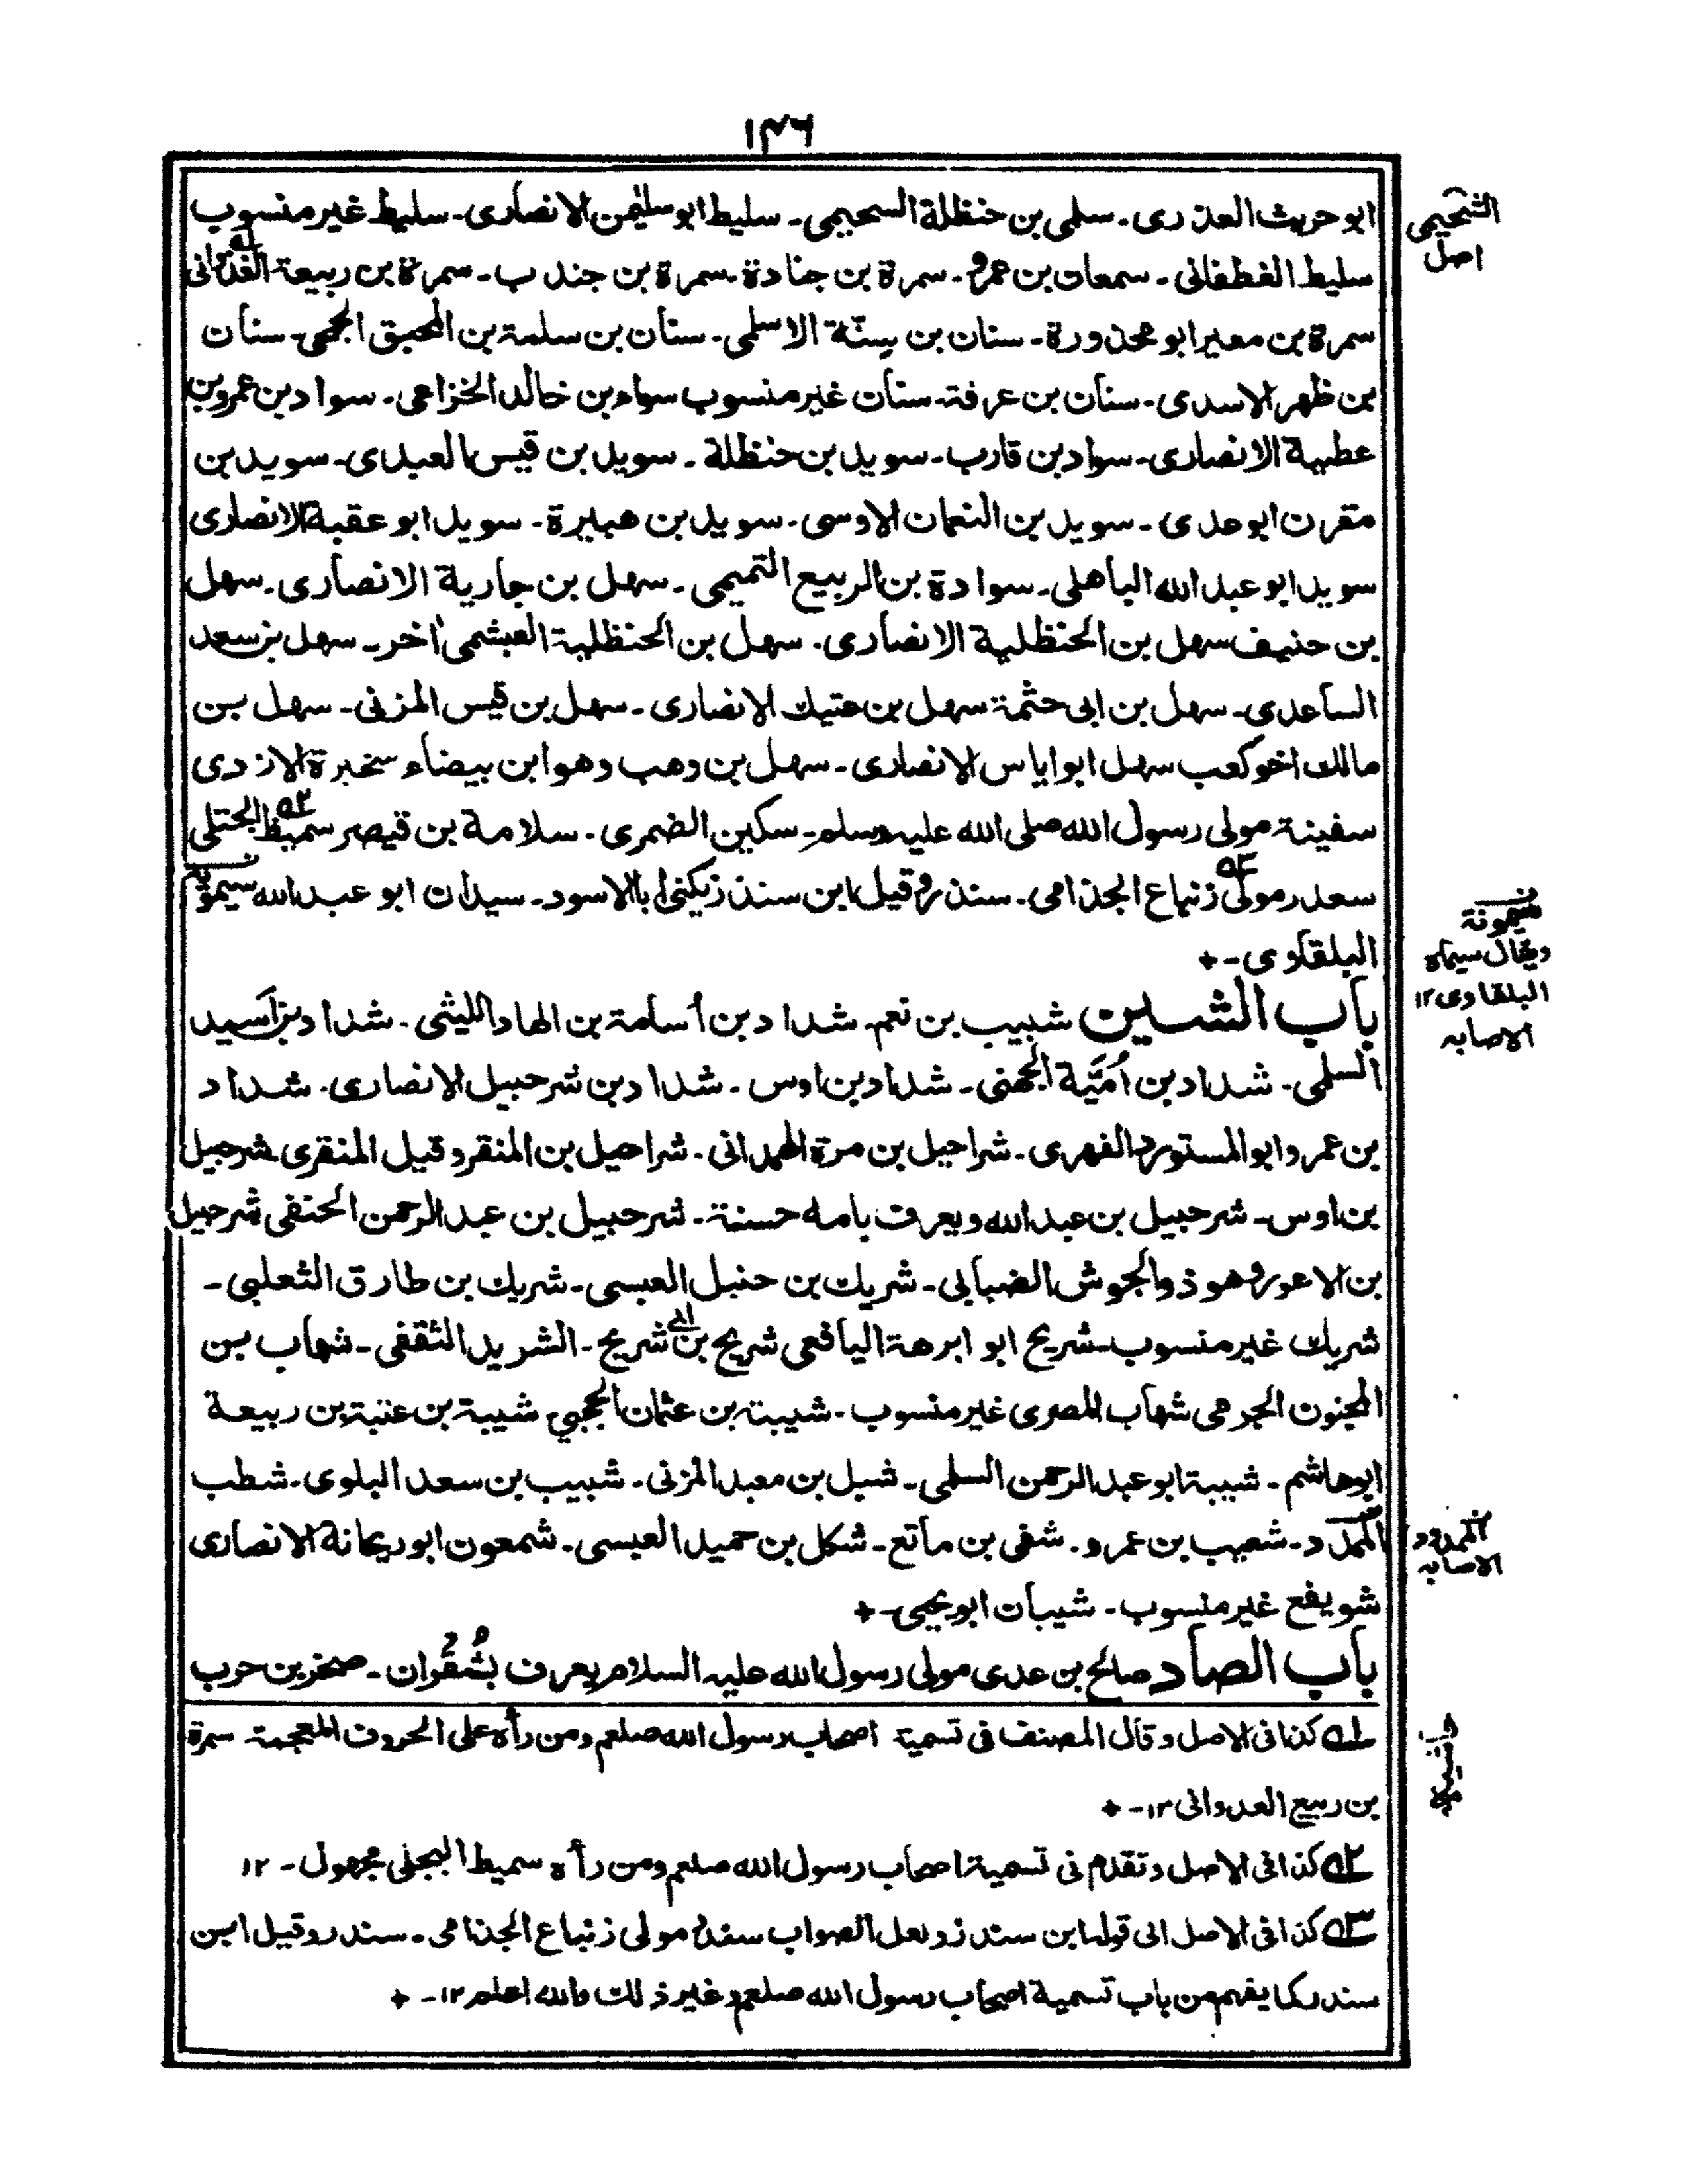 ١٣٦
ابو حريث العذري۔ سلمى بن حنظلة السحيمي۔ سليط ابو سليمن الانصارى۔ سليط غير منسوب
سليط الغطفانى ۔ سمعان بن عمرو۔ سمرة بن جنادة۔ سمرة بن جندب۔ سمرة بن ربيعة العذوانى
سمرة بن معير ابو محذورة۔ سنان بن سنّة الاسلمى۔ سنان بن سلمة بن المحبق الجمحى۔ سنان
بن ظهر الاسدى۔ سنان بن عرفة۔ سنان غير منسوب سواد بن خالد الخزاعى۔ سواد بن عمرو بن
عطية الانصارى۔ سواد بن قارب۔ سويد بن حنظلة ۔ سويد بن قيس العبدى۔ سويد بن
مقرن ابو عدى ۔ سويد بن النعمان الاوسى۔ سويد بن هبيرة۔ سويد ابو عقبة الانصارى
سويد ابو عبد الله الباهلى۔ سوادة بن الربيع التميمى۔ سهل بن جارية الانصارى۔ سهل
بن حنيف سهل بن الحنظلية الانصارى۔ سهل بن الحنظلية العبشمى اخر۔ سهل بن سعد
الساعدى۔ سهل بن ابى حثمة سهل بن عتيك الانصارى۔ سهل بن قيس المزنى۔ سهل بن
مالك اخو كعب سهل ابو اياس الانصارى۔ سهل بن وهب وهو ابن بيضاء سخبرة الازدى
سفينة مولى رسول الله صلى الله عليه وسلم۔ سكين الضمرى۔ سلامة بن قيصر سميط ٥٢ البختلى
سعدر مولى ٥٣ زنباع الجذامى۔ سندر وقيل ابن سندر يكنى ابا الاسود۔ سيدان ابو عبد الله سيموية
البلقاوى۔+
باب الشين شبيب بن نعم۔ شداد بن أسامة بن الهاد الليثى۔ شداد بن أسيد
السلمى۔ شداد بن أُمَيَّة الجهنى۔ شداد بن اوس۔ شداد بن شرحبيل الانصارى۔ شداد
بن عمرو ابو المستورد الفهرى۔ شراحيل بن مرة الهمدانى۔ شراحيل بن المنقر وقيل المنقرى شرحبيل
بن اوس۔ شرحبيل بن عبد الله ويعرف بامه حسنة۔ شرحبيل بن عبد الرحمن الحنفى شرحبيل
بن الاعور وهو ذو الجوش الضبابى۔ شريك بن حنبل العبسى۔ شريك بن طارق الثعلبى۔
شريك غير منسوب۔ شريح ابو ابرهة اليافعى شريح بن ابى شريح۔ الشريد الثقفى۔ شهاب بن
المجنون الجرمى شهاب المصرى غير منسوب۔ شيبة بن عثمان الحجبى شيبة بن عتبة بن ربيعة
ابو هاشم۔ شيبة ابو عبد الرحمن السلمى۔ شبل بن معبد المزنى۔ شبيب بن سعد البلوى۔ شطب
الممد د۔ شعيب بن عمرو۔ شفى بن ماتع۔ شكل بن حميد العبسى۔ شمعون ابو ريحانة الانصارى
شويفع غير منسوب۔ شيبان ابو يحيى۔+
باب الصاد صالح بن عدى مولى رسول الله عليه السلام يعرف بشُقْران۔ صخر بن حرب
٥١ كذا فى الاصل وقال المصنف فى تسمية اصحاب رسول الله صلعم ومن رأه على الحروف المعجمة سمرة
بن ربيع العدوانى ١٢۔+
٥٢ كذا فى الاصل وتقدم فى تسمية اصحاب رسول الله صلعم ومن رأه سميط البجلى مجهول۔ ١٢
٥٣ كذا فى الاصل الى قوله ابن سندر ولعل الصواب سندر مولى زنباع الجذامى۔ سندر وقيل ابن
سندر كما يفهم من باب تسمية اصحاب رسول الله صلعم وغير ذلك والله اعلم ١٢۔+
الشحيمى
اصل
سيمونة
ويقال سيماه
البلقاوى ١٢
الاصابه
الممدود
الاصابه